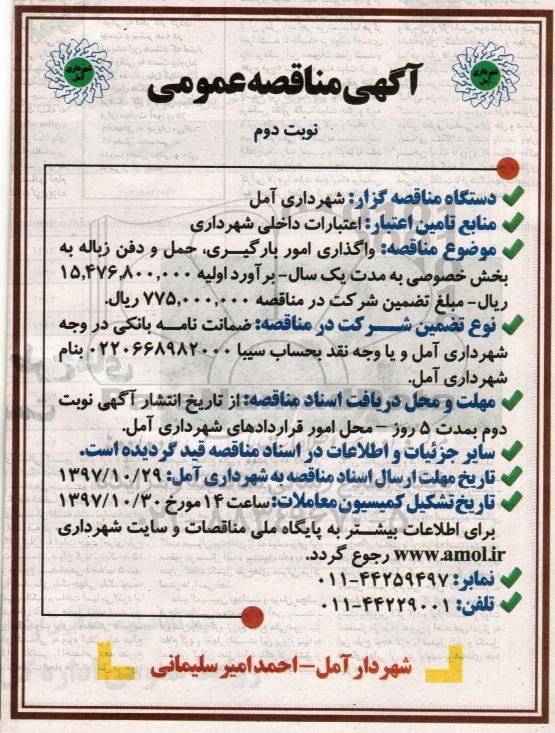 شهرداری آمل
شهرداری آمل
آگهی مناقصه عمومی
نوبت دوم
دستگاه مناقصه گزار: شهرداری آمل
منابع تامین اعتبار: اعتبارات داخلی شهرداری
موضوع مناقصه: واگذاری امور بارگیری، حمل و دفن زباله به
بخش خصوصی به مدت یک سال- برآورد اولیه ۱۵,۴۷۶,۸۰۰,۰۰۰
ریال- مبلغ تضمین شرکت در مناقصه ۷۷۵,۰۰۰,۰۰۰ ریال.
نوع تضمین شرکت در مناقصه: ضمانت نامه بانکی در وجه
شهرداری آمل و یا وجه نقد بحساب سیبا ۰۲۲۰۶۶۸۹۸۲۰۰۰ بنام
شهرداری آمل.
مهلت و محل دریافت اسناد مناقصه: از تاریخ انتشار آگهی نوبت
دوم بمدت ۵ روز – محل امور قراردادهای شهرداری آمل.
سایر جزئیات و اطلاعات در اسناد مناقصه قید گردیده است.
تاریخ مهلت ارسال اسناد مناقصه به شهرداری آمل: ۱۳۹۷/۱۰/۲۹
تاریخ تشکیل کمیسیون معاملات: ساعت ۱۴ مورخ ۱۳۹۷/۱۰/۳۰
برای اطلاعات بیشتر به پایگاه ملی مناقصات و سایت شهرداری
www.amol.ir رجوع گردد.
نمابر: ۰۱۱-۴۴۲۵۹۴۹۷
تلفن: ۰۱۱-۴۴۲۲۹۰۰۱
شهردار آمل – احمد امیر سلیمانی